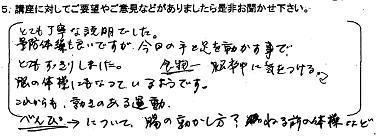 5. 講座に対してご要望やご意見などがありましたら是非お聞かせ下さい。
とても丁寧な説明でした。
予防体操も良いですが、今日の手と足を動かす事で
とてもすっきりしました。食物一 服部中に気をつける。
脳の体操にもなっているようです。
これからも、動きのある運動、
べんぴ → について、腸の動かし方? 寝る前の体操など